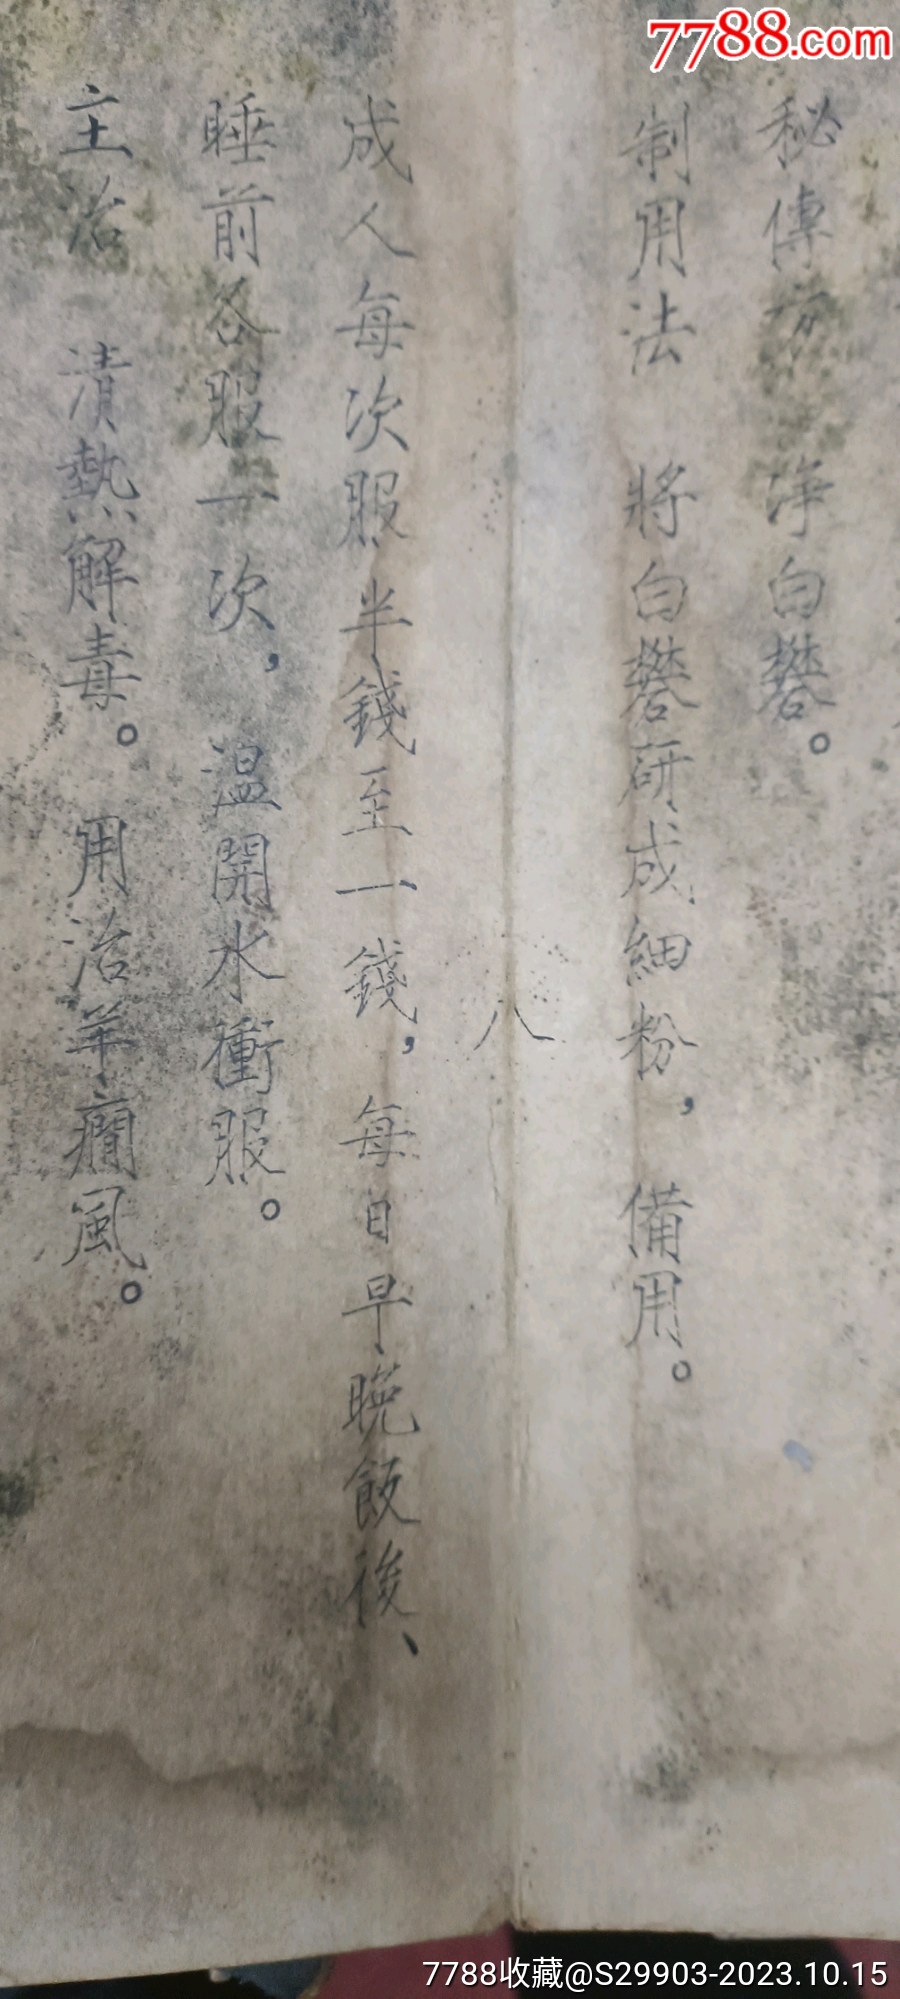 7788.com
秘傳方 淨白礬。
制用法 將白礬研成細粉，備用。
八
成人每次服半錢至一錢，每日早晚飯後、
睡前各服一次，温開水衝服。
主治 清熱解毒。用治羊癇風。
7788收藏@S29903-2023.10.15